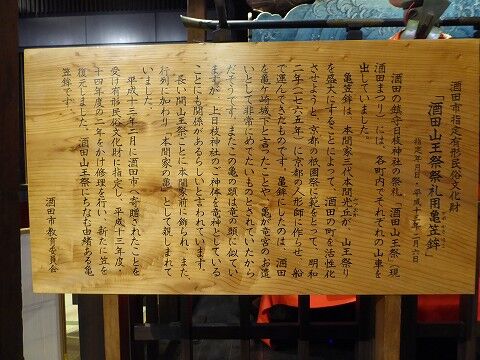 酒田市指定有形民俗文化財
「酒田山王祭祭礼用亀笠鉾」
指定年月日・平成十三年二月六日
酒田の鎮守日枝神社の祭礼、酒田山王祭(現
酒田まつり)には、各町内でそれぞれの山車を
出していました。
亀笠鉾は、本間家三代本間光丘が、山王祭り
を盛大にすることによって、酒田の町を活性化
させようと、京都の祇園祭に範をとって、明和
二年(一七六五年)に京都の人形師に作らせ、船
で運んできたものです。亀鉾にしたのは、酒田
を亀ケ崎城下と言ったことや、亀が竜宮のお遣
いとして非常にめでたいものとされていたから
だそうです。またこの亀の頭は竜の頭に似てい
ますが、上日枝神社のご神体を竜神としている
ことにも関係があるらしいとも言われています。
長い間山王祭ごとに本間家の前に飾られ、また、
行列に加わり「本間家の亀」として親しまれて
いました。
平成十三年二月に酒田市へ寄贈されたことを
受け有形民俗文化財に指定し、平成十三年度・
十四年度の二年をかけ修理を行い、新たに笠を
復元しました。酒田山王祭にちなむ由緒ある亀
笠鉾です。
酒田市教育委員会